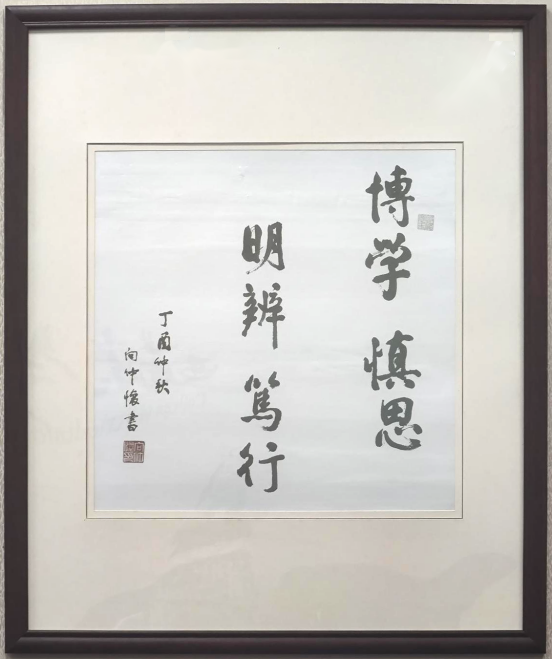 博学 慎思
明辨 笃行
丁酉仲秋
向仲怀书